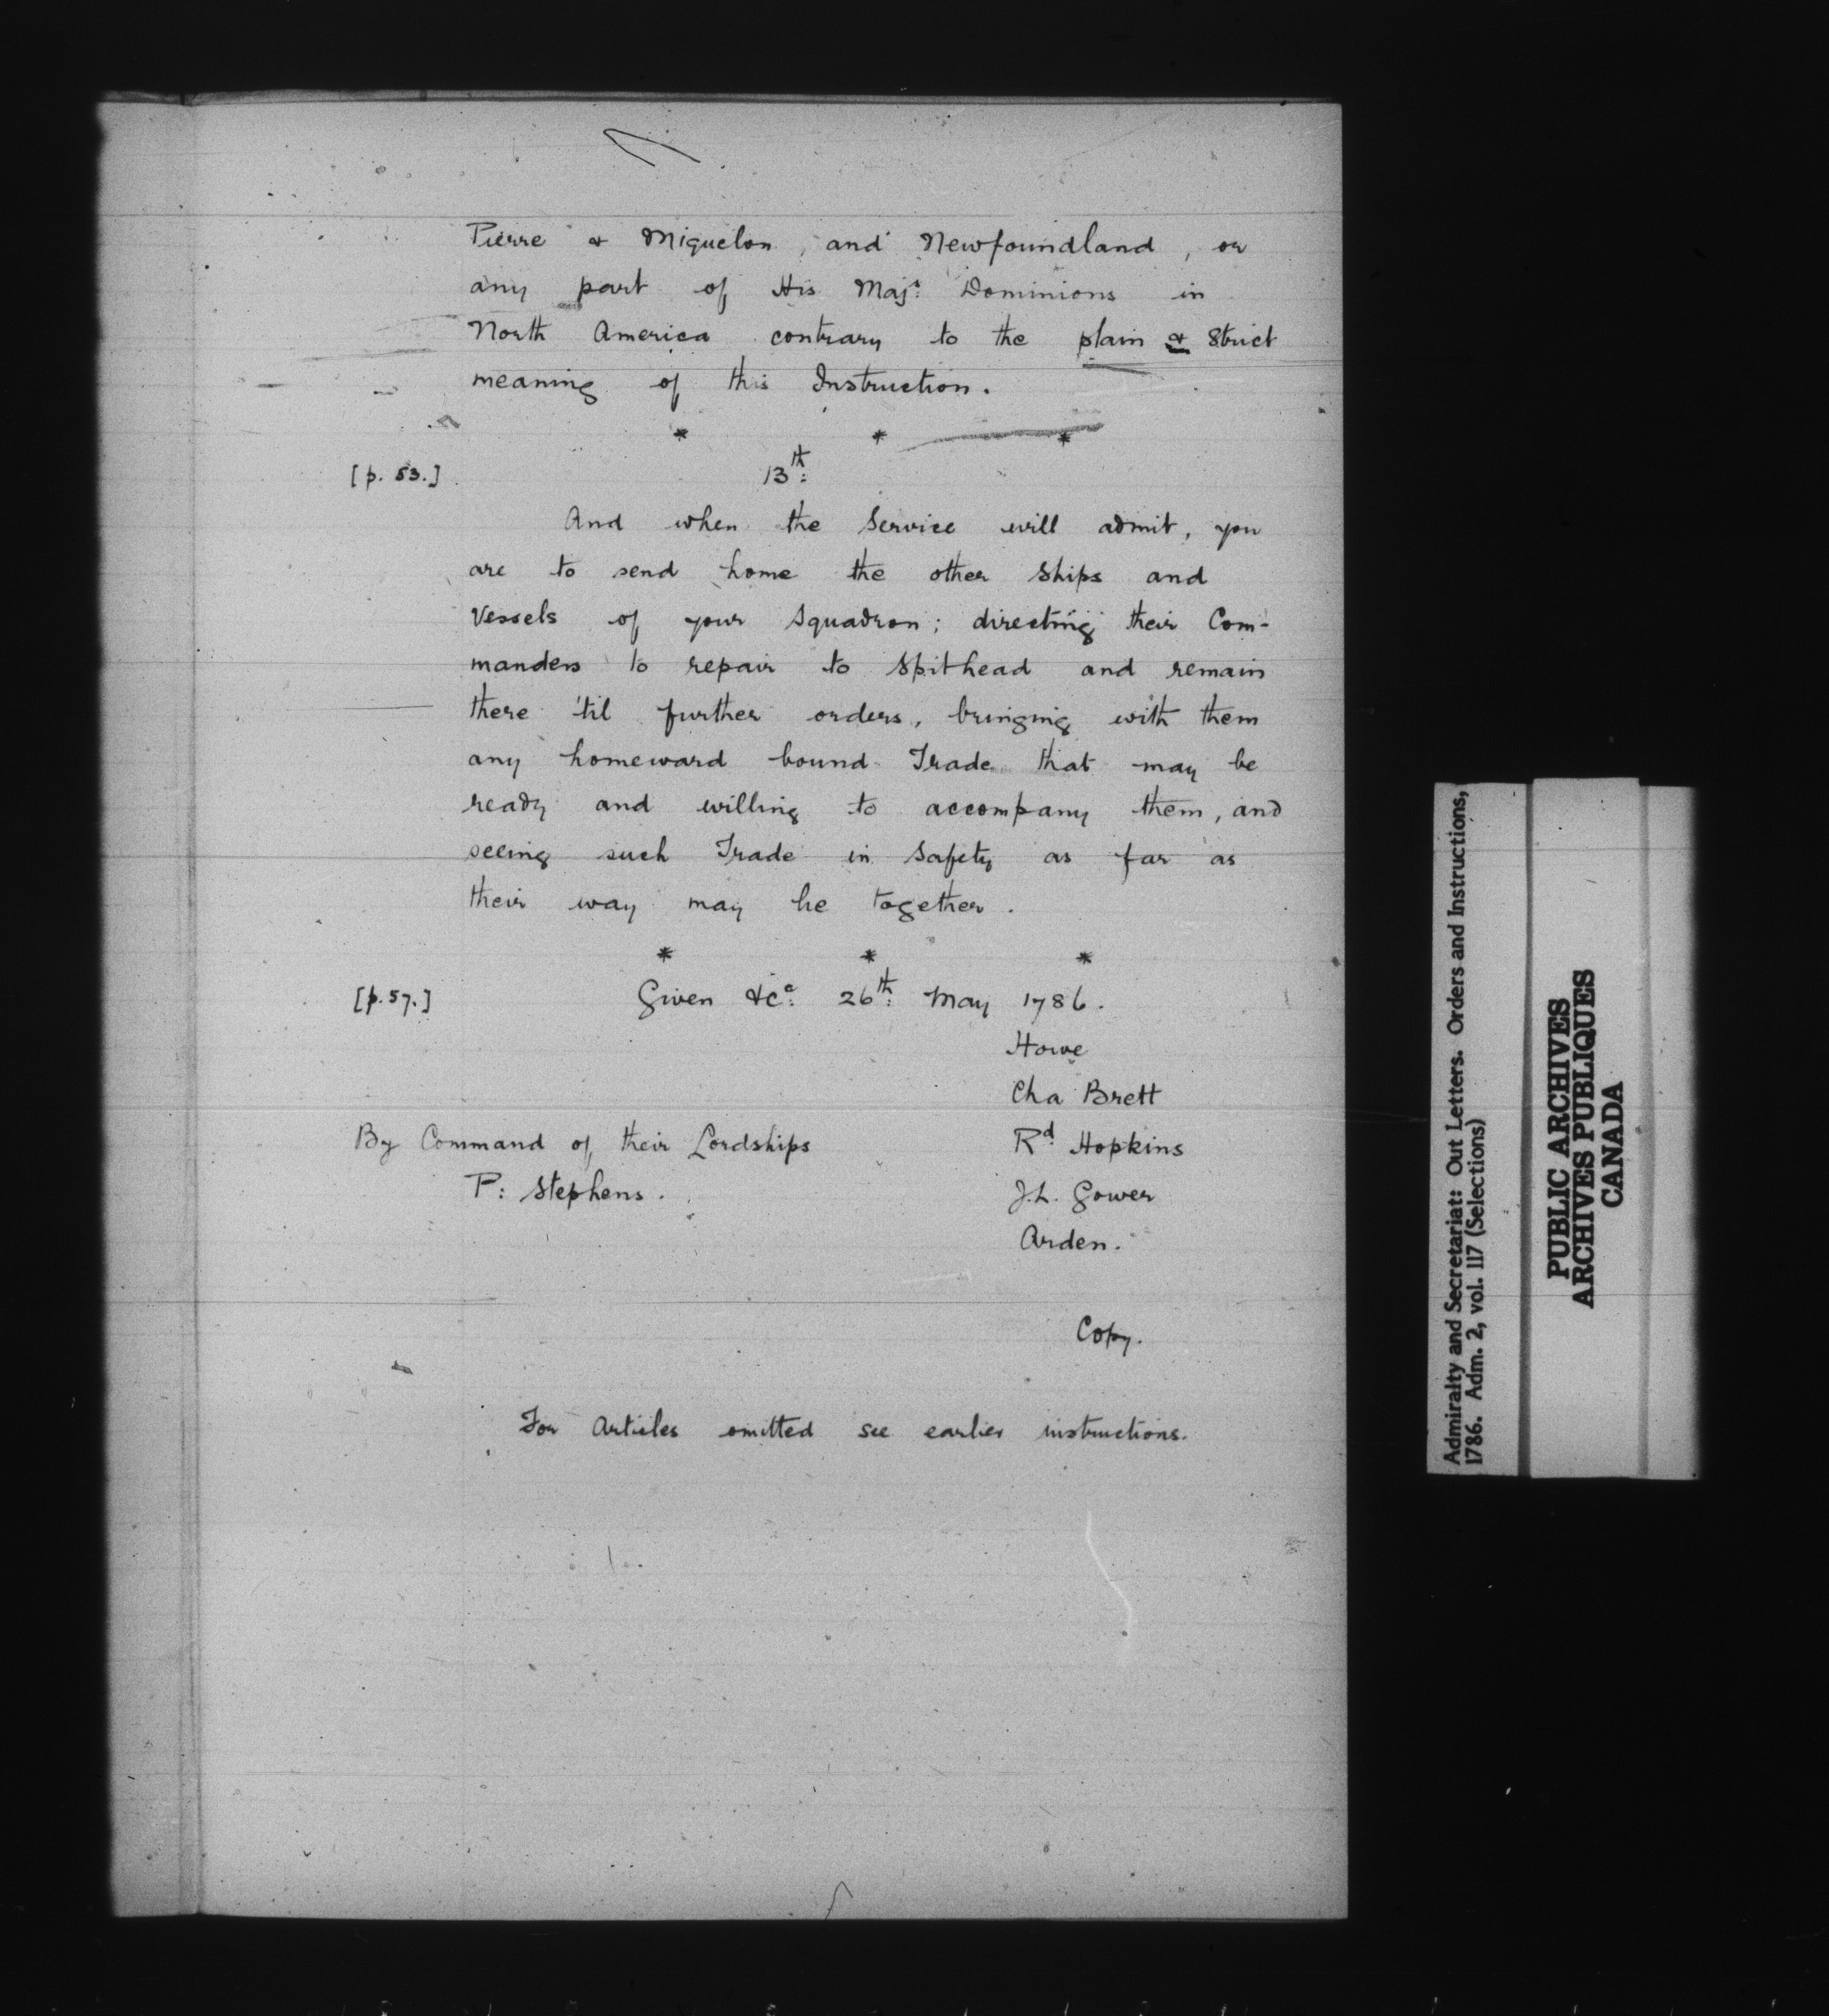 Pierre & Miquelon, and Newfoundland, or
any part of His Maj^s: Dominions in
North America contrary to the plain & Strict
meaning of this Instruction.
* * *
[p. 53.] 13^th:
And when the Service will admit, you
are to send home the other Ships and
Vessels of your Squadron; directing their Com-
manders to repair to Spithead and remain
there 'til further orders, bringing with them
any homeward bound Trade that may be
ready and willing to accompany them, and
seeing such Trade in Safety as far as
their way may lie together.
* * *
[p. 57.] Given &c^a: 26^th: May 1786.
Howe
Cha Brett
By Command of their Lordships R^d: Hopkins
P: Stephens. J.L. Gower
Arden.
Copy.
For Articles omitted see earlier instructions.
Admiralty and Secretariat: Out Letters. Orders and Instructions,
1786. Adm. 2, vol. 117 (Selections)
PUBLIC ARCHIVES
ARCHIVES PUBLIQUES
CANADA